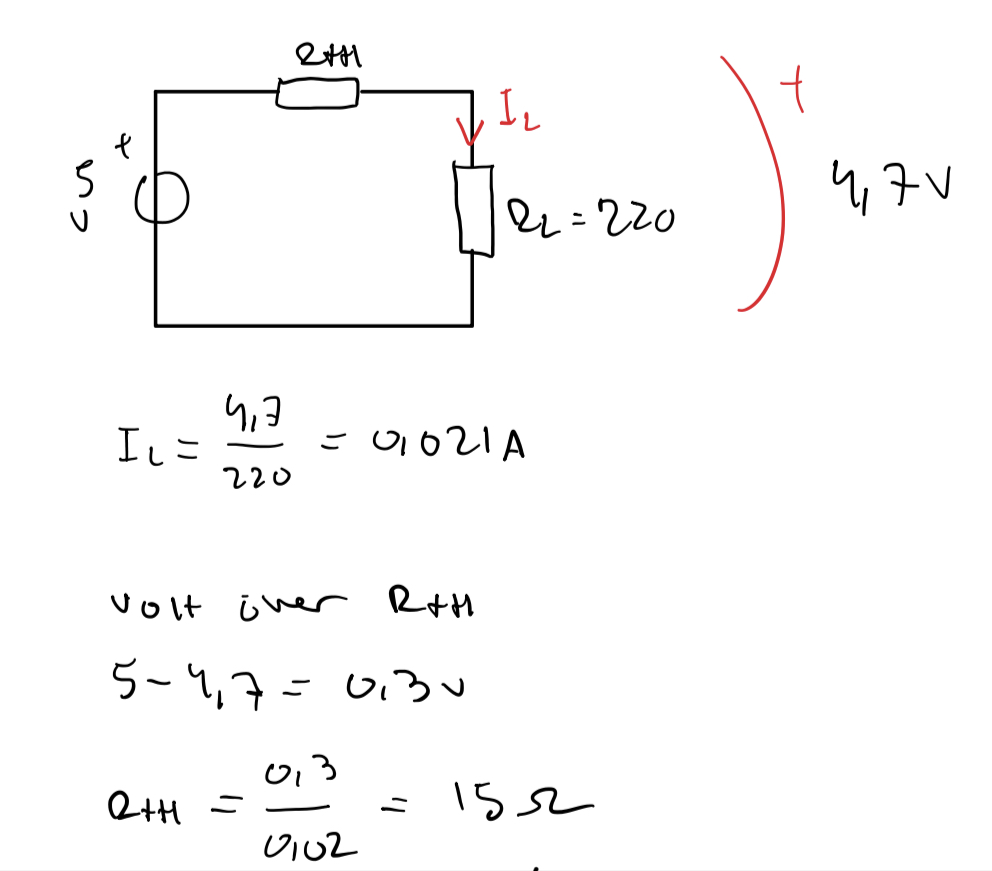 RTH
+
5
V
IL
RL = 220
+
4,7V
IL = 4,7/220 = 0,021A
volt över RTH
5-4,7 = 0,3v
RTH = 0,3/0,02 = 15Ω